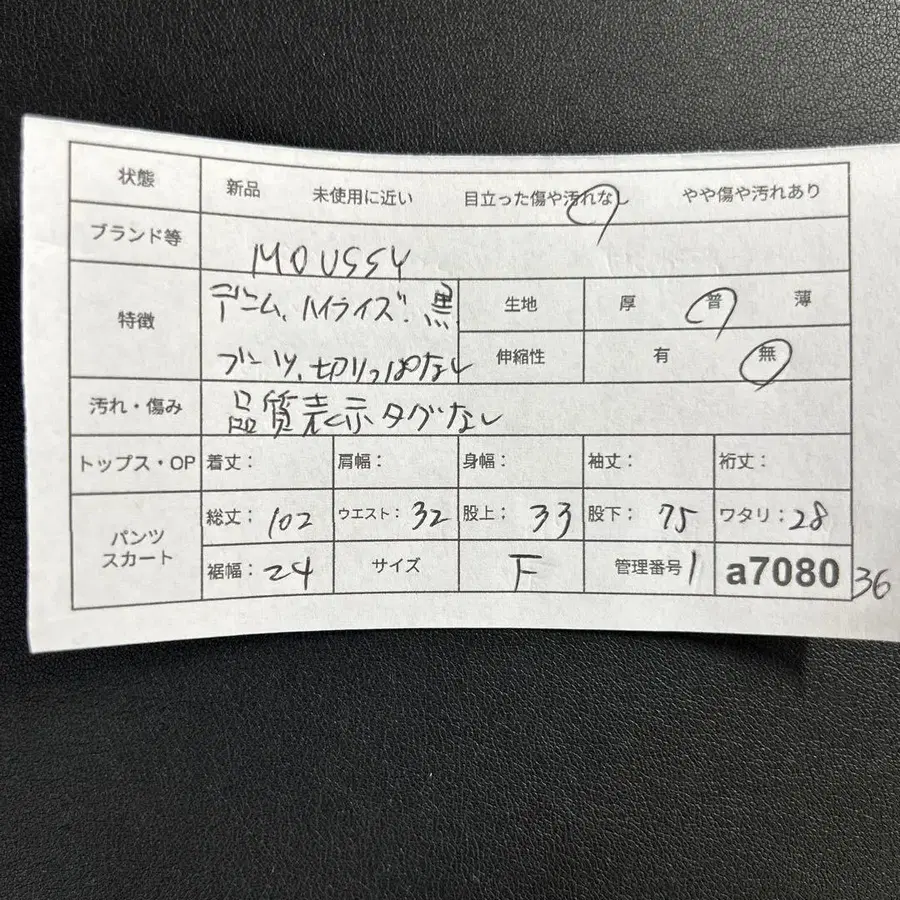 状態 新品 未使用に近い 目立った傷や汚れなし やや傷や汚れあり
ブランド等 MOUSSY
特徴 デニム、ハイライズ、黒
ブーツ、切りっぱなし
生地 厚 普 薄
伸縮性 有 無
汚れ・傷み 品質表示タグなし
トップス・OP 着丈: 肩幅: 身幅: 袖丈: 裄丈:
パンツ スカート
総丈: 102 ウエスト: 32 股上: 33 股下: 75 ワタリ: 28
裾幅: 24 サイズ F 管理番号 1 a7080 36